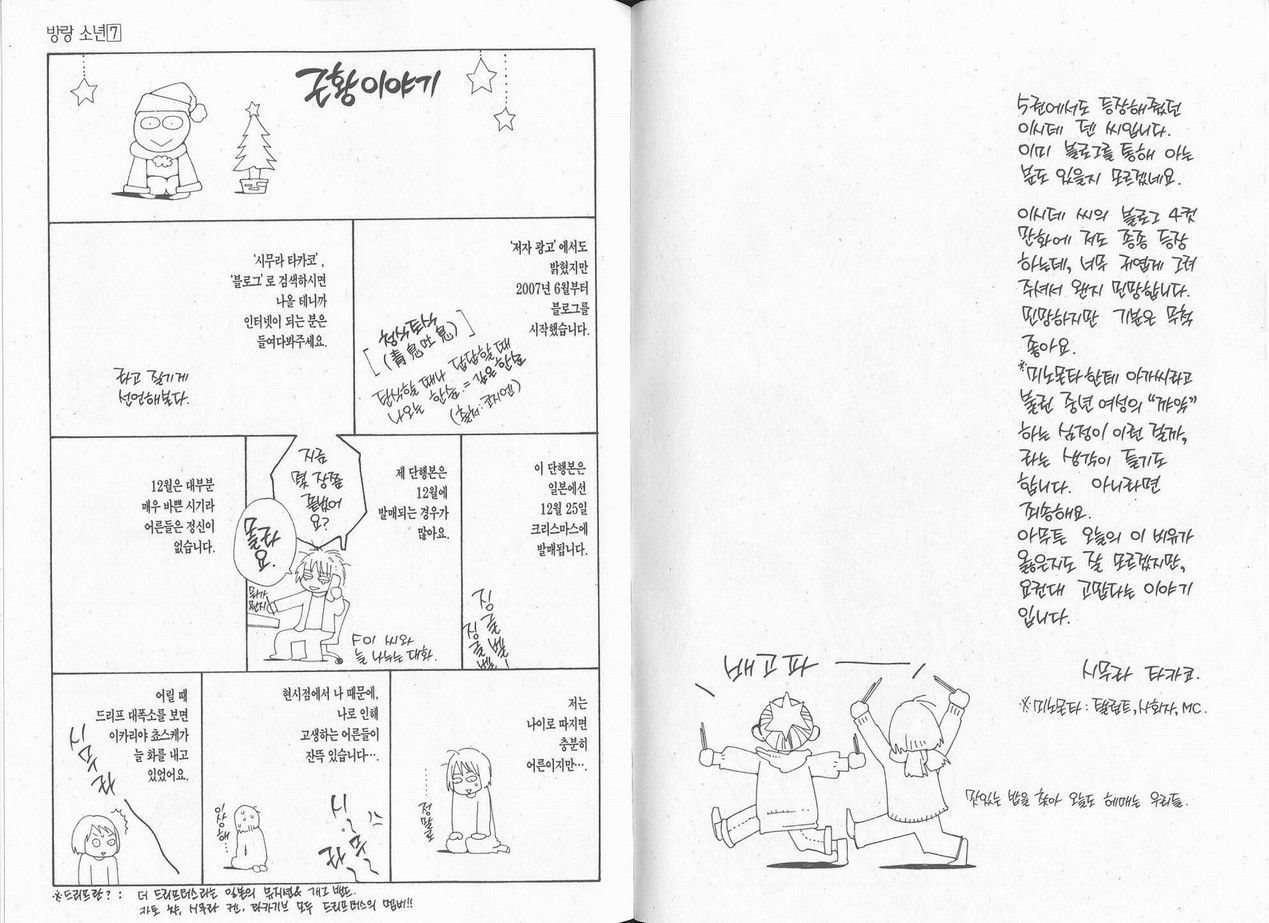 방랑 소년 7
근황이야기
'저자 광고'에서도
밝혔지만
2007년 6월부터
블로그를
시작했습니다.
(靑息吐息)
답답할 때
나오는 한숨.= 깊은 한숨
'시무라 타카코',
'블로그'로 검색하시면
나올 테니까
인터넷이 되는 분은
들여다봐주세요.
라고 질기게
선언해본다.
이 단행본은
일본에선
12월 25일
크리스마스에
발매됩니다.
징글벨
징글벨
제 단행본은
12월에
발매되는 경우가
많아요.
지금
몇 장쯤
됐어
요?
몰라
요.
F01 씨와
늘 나누는 대화.
12월은 대부분
매우 바쁜 시기라
어른들은 정신이
없습니다.
저는
나이로 따지면
충분히
어른이지만….
……정말로
현시점에서 나 때문에,
나로 인해
고생하는 어른들이
잔뜩 있습니다…
이상해…
시무라
어릴 때
드리프 대폭소를 보면
이카리야 쵸스케가
늘 화를 내고
있었어요.
시무라
※드리프란? : 더 드리프터스라는 일본의 뮤지션& 개그 밴드.
카토 챠, 시무라 켄, 타카기 부 모두 드리프터스의 멤버!!
5권에서도 등장해줬던
이시데 덴 씨입니다.
이미 블로그를 통해 아는
분도 있을지 모르겠네요.
이시데 씨의 블로그 4컷
만화에 저도 종종 등장
하는데, 너무 귀엽게 그려
주셔서 왠지 민망합니다.
민망하지만 기분은 무척
좋아요.
※미노몬타한테 아가씨라고
불린 중년 여성의 "꺄악"
하는 심정이 이런 걸까,
라는 생각이 들기도
합니다. 아니라면
죄송해요.
아무튼 오늘의 이 비유가
옳은지도 잘 모르겠지만,
요컨대 고맙다는 이야기
입니다.
시무라 타카코.
※ 미노몬타 : 탤런트, 사회자, MC.
배고파
맛있는 밥을 찾아 오늘도 헤매는 우리들.